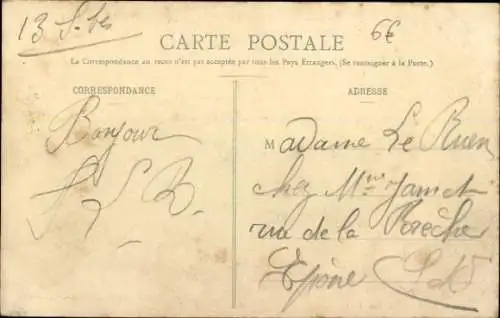 13 S-les
6€
CARTE POSTALE
La Correspondance au recto n'est pas acceptée par tous les Pays Etrangers. (Se renseigner à la Poste.)
CORRESPONDANCE
Bonjour
S. L. B.
ADRESSE
Madame Le Ruen
chez Mme Jamet
rue de la Brèche
Epône S&O